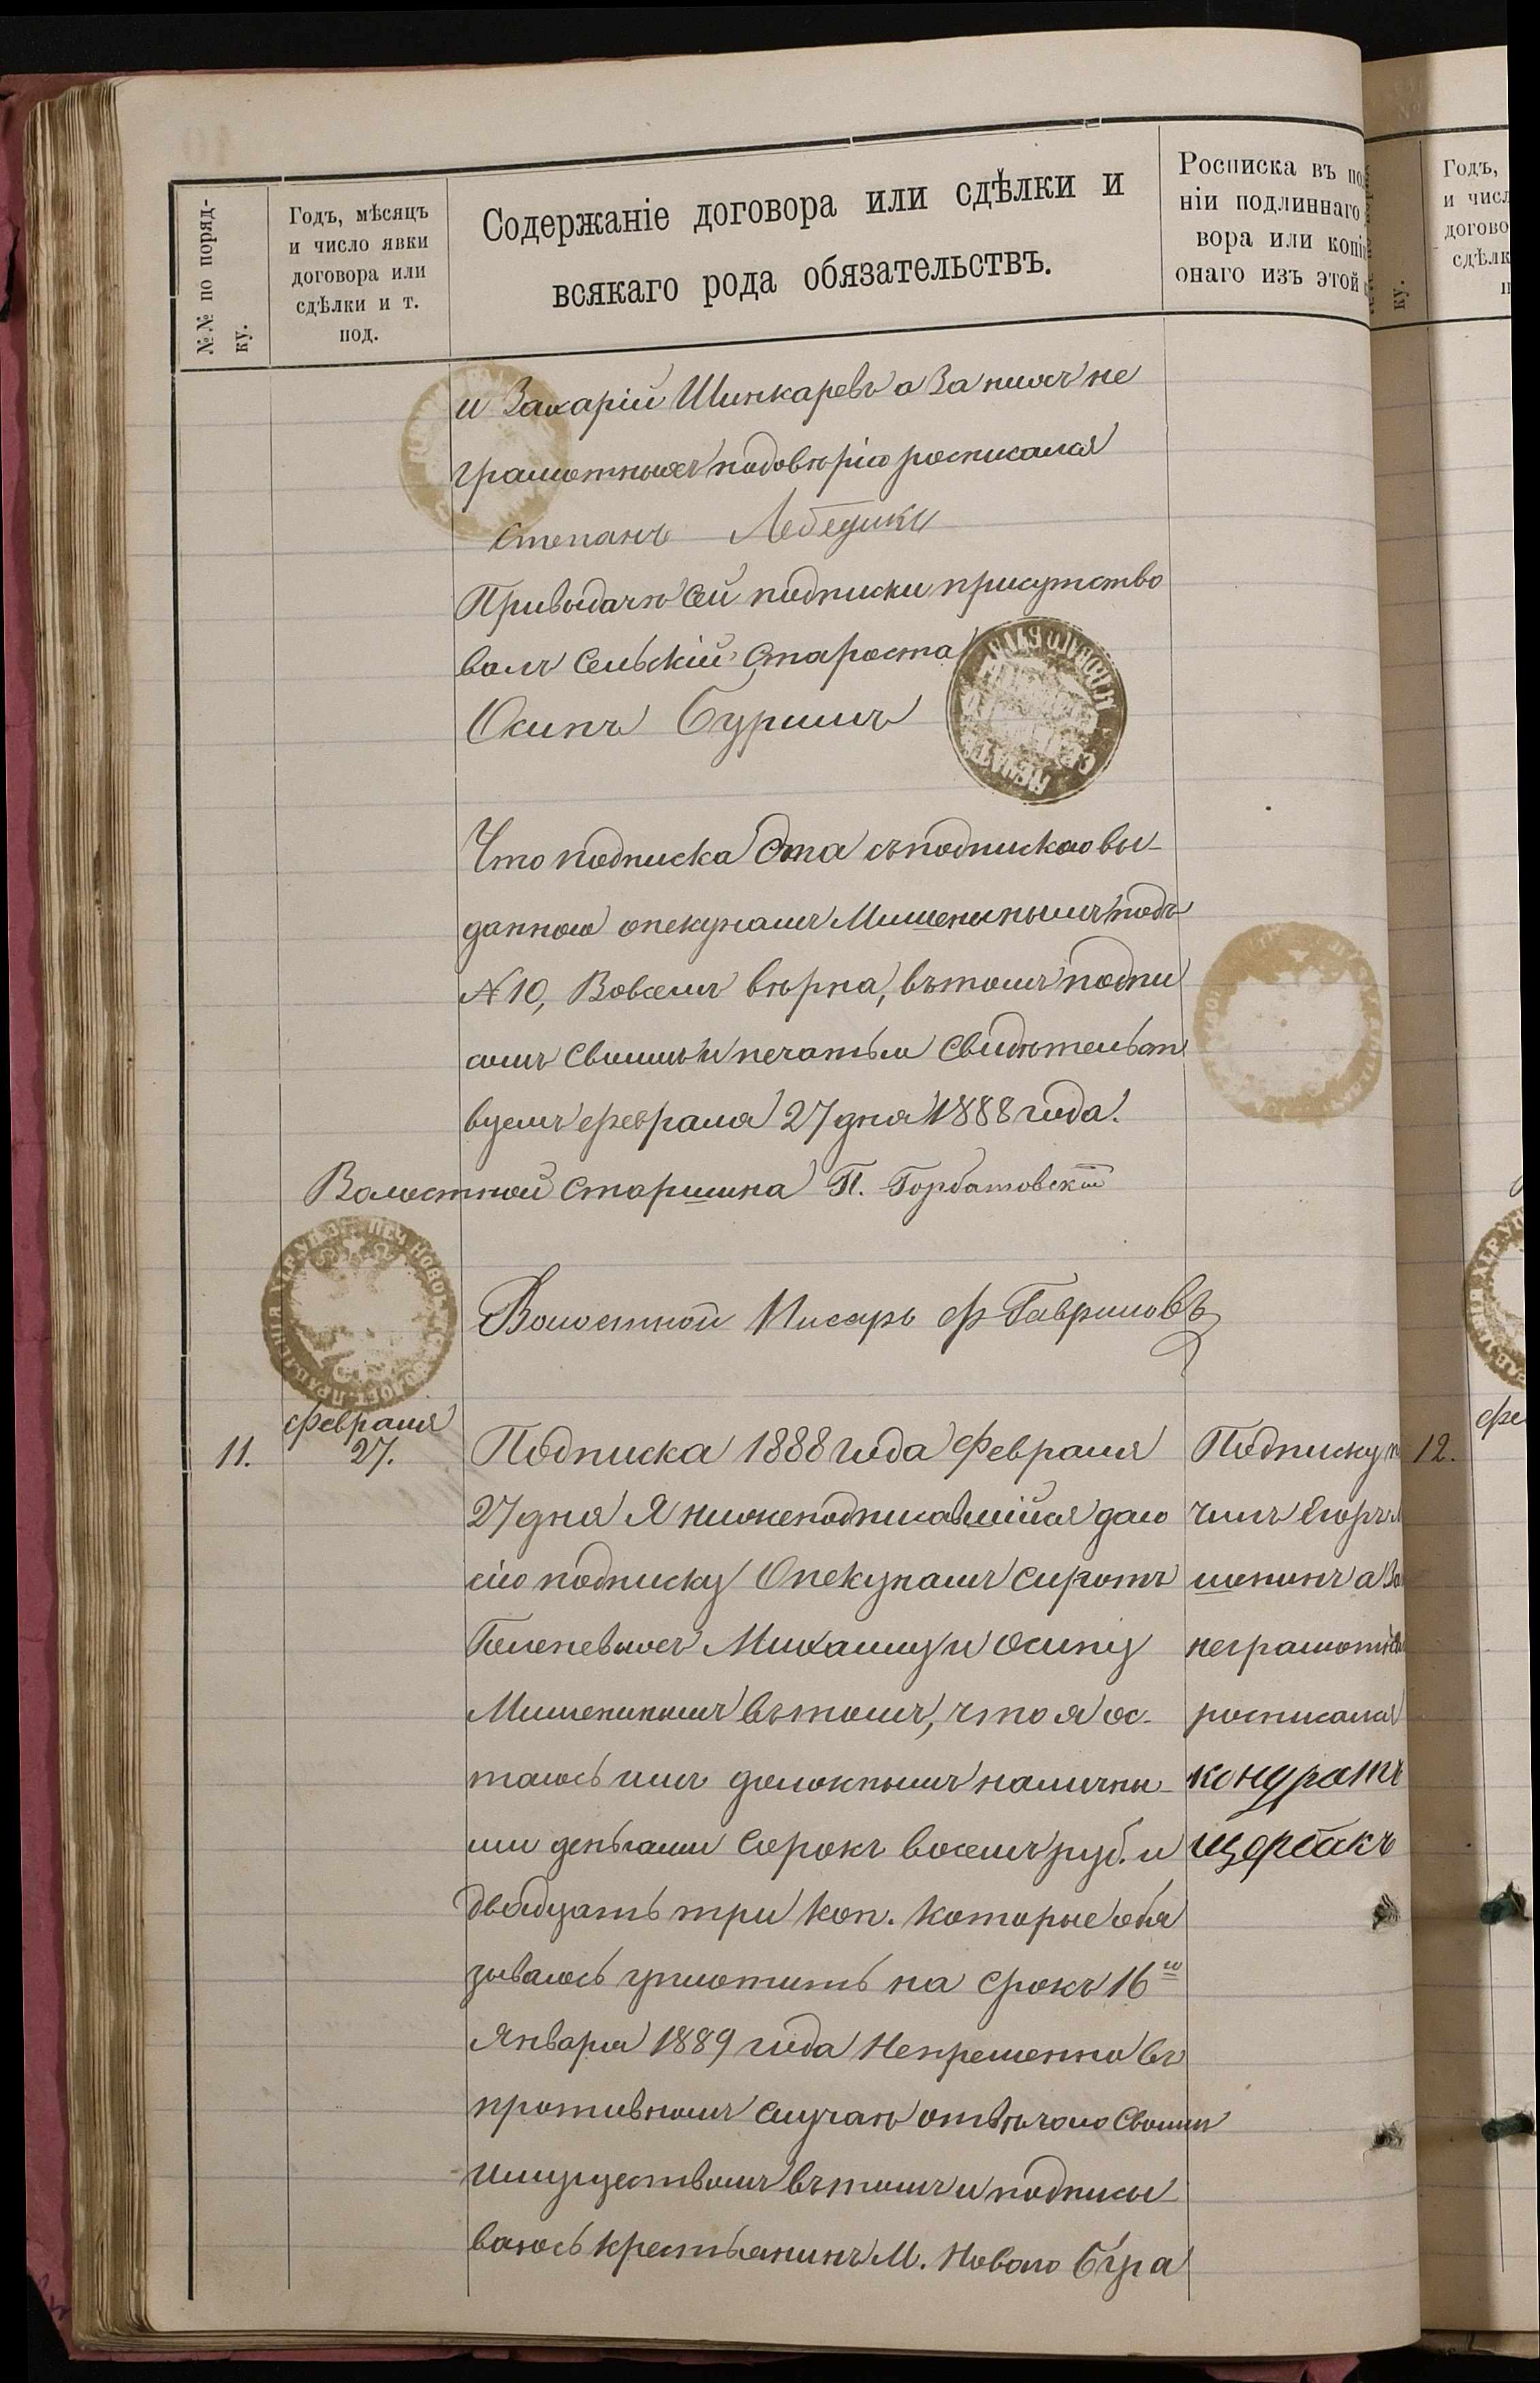 №№ по поряд-
ку.
Годъ, мѣсяцъ
и число явки
договора или
сдѣлки и т.
под.
Содержаніе договора или сдѣлки и
всякаго рода обязательствъ.
Росписка въ по
ніи подлиннаго
вора или копі
онаго изъ этой
и Захарій Шинкаревъ а За нихъ не
грамотныхъ подовѣрію росписался
Степанъ Лебедикъ
Привыдачѣ сей подписки присутство
валъ Сельскій Староста
Осипъ Буримъ
ПЕЧАТЬ
Что подписка Эта съподпискою вы-
данною опекунамъ Мишенинымъ подъ
№ 10, Вовсемъ вѣрна, вътомъ подпи
сомъ своимъ и печатью Свидѣтельст
вуемъ февраля 27 дня 1888 года.
Волостной Старшина П. Горбатовскій
Волостной Писарь Ф Гавриловъ
11.
Февраля
27.
Подписка 1888 года Февраля
27 дня Я нижеподписавшійся даю
сію подписку Опекунамъ Сиротъ
Голеневыхъ Михаилу и Осипу
Мишенинымъ вътомъ, что я ос-
таюсь имъ должнымъ наличны-
ми деньгами Сорокъ восемъ руб. и
двадцать три коп. Которые обя
зываюсь уплотить на Срокъ 16го
Января 1889 года Непременно въ
противномъ случаѣ отвѣчаю Своимъ
имуществомъ вътомъ и подписы-
ваюсь крестьянинъ М. Новаго Буга
Подписку п
чилъ Егоръ М
шенинъ а За
неграмотн
росписался
кондратъ
щербакъ
12.
Годъ,
и числ
догово
сдѣлк
ку.
Фе